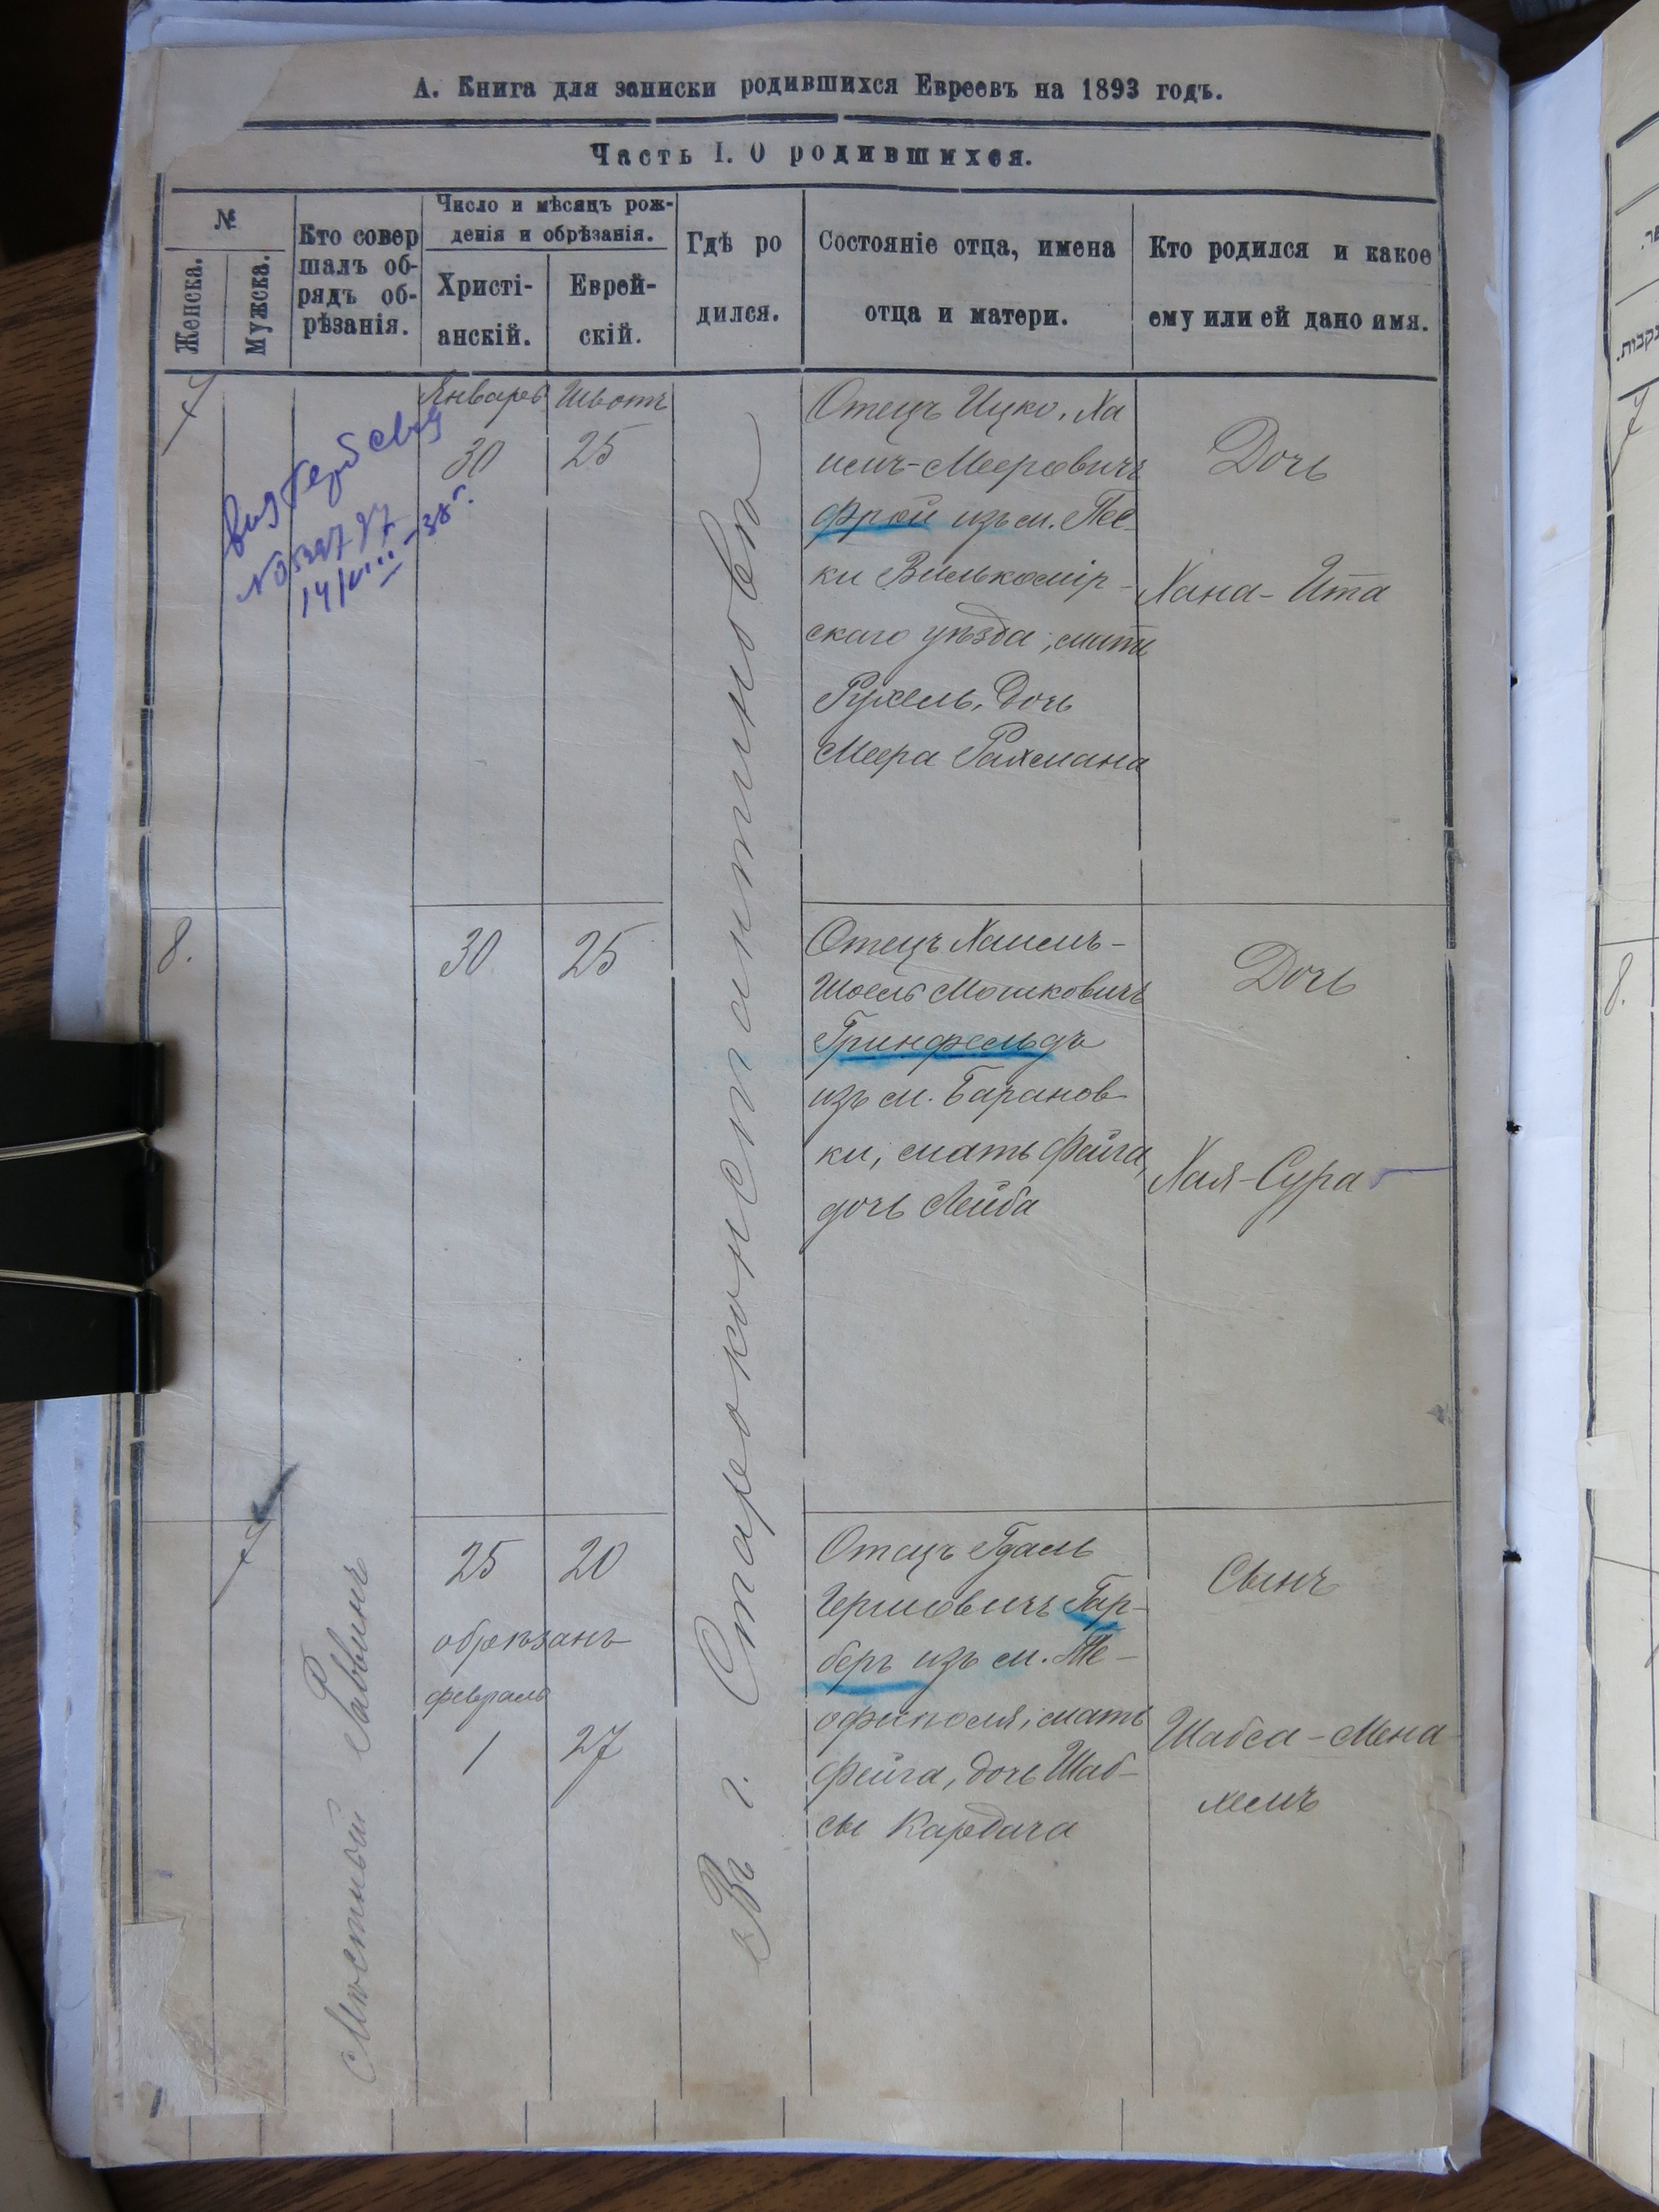 А. Книга для записки родившихся Евреевъ на 1893 годъ.
Часть I. О родившихся.
№
Женска.
Мужска.
Кто совер
шалъ об-
рядъ об-
рѣзанія.
Число и мѣсяцъ рож-
денія и обрѣзанія.
Христі-
анскій.
Еврей-
скій.
Гдѣ ро
дился.
Состояніе отца, имена
отца и матери.
Кто родился и какое
ему или ей дано имя.
7
14/VIII-38 г.
Январь
30
Шватъ
25
Въ г. Староконстантиновѣ
Отецъ Ицко, Ха
имъ-Мееровичъ
Фрой изъ м.
ки Вилькомір-
скаго уѣзда, мать
Рухель, дочь
Меера Рахмана
Дочь
Хана-Ита
8.
30
25
Отецъ Хаимъ-
Шоель Мошковичъ
Гринфельдъ
изъ м. Баранов
ки, мать Фейга
дочь Лейба
Дочь
Хая-Сура
7
Мѣстный Раввинъ
25
20
обрѣзанъ
февраль
1
27
Отецъ Гдаль
Гершовичъ Гар-
беръ изъ м. Те-
офиполя, мать
Фейга, дочь Шаб-
сы Кардача
Сынъ
Шабса-Мена
хемъ
8.